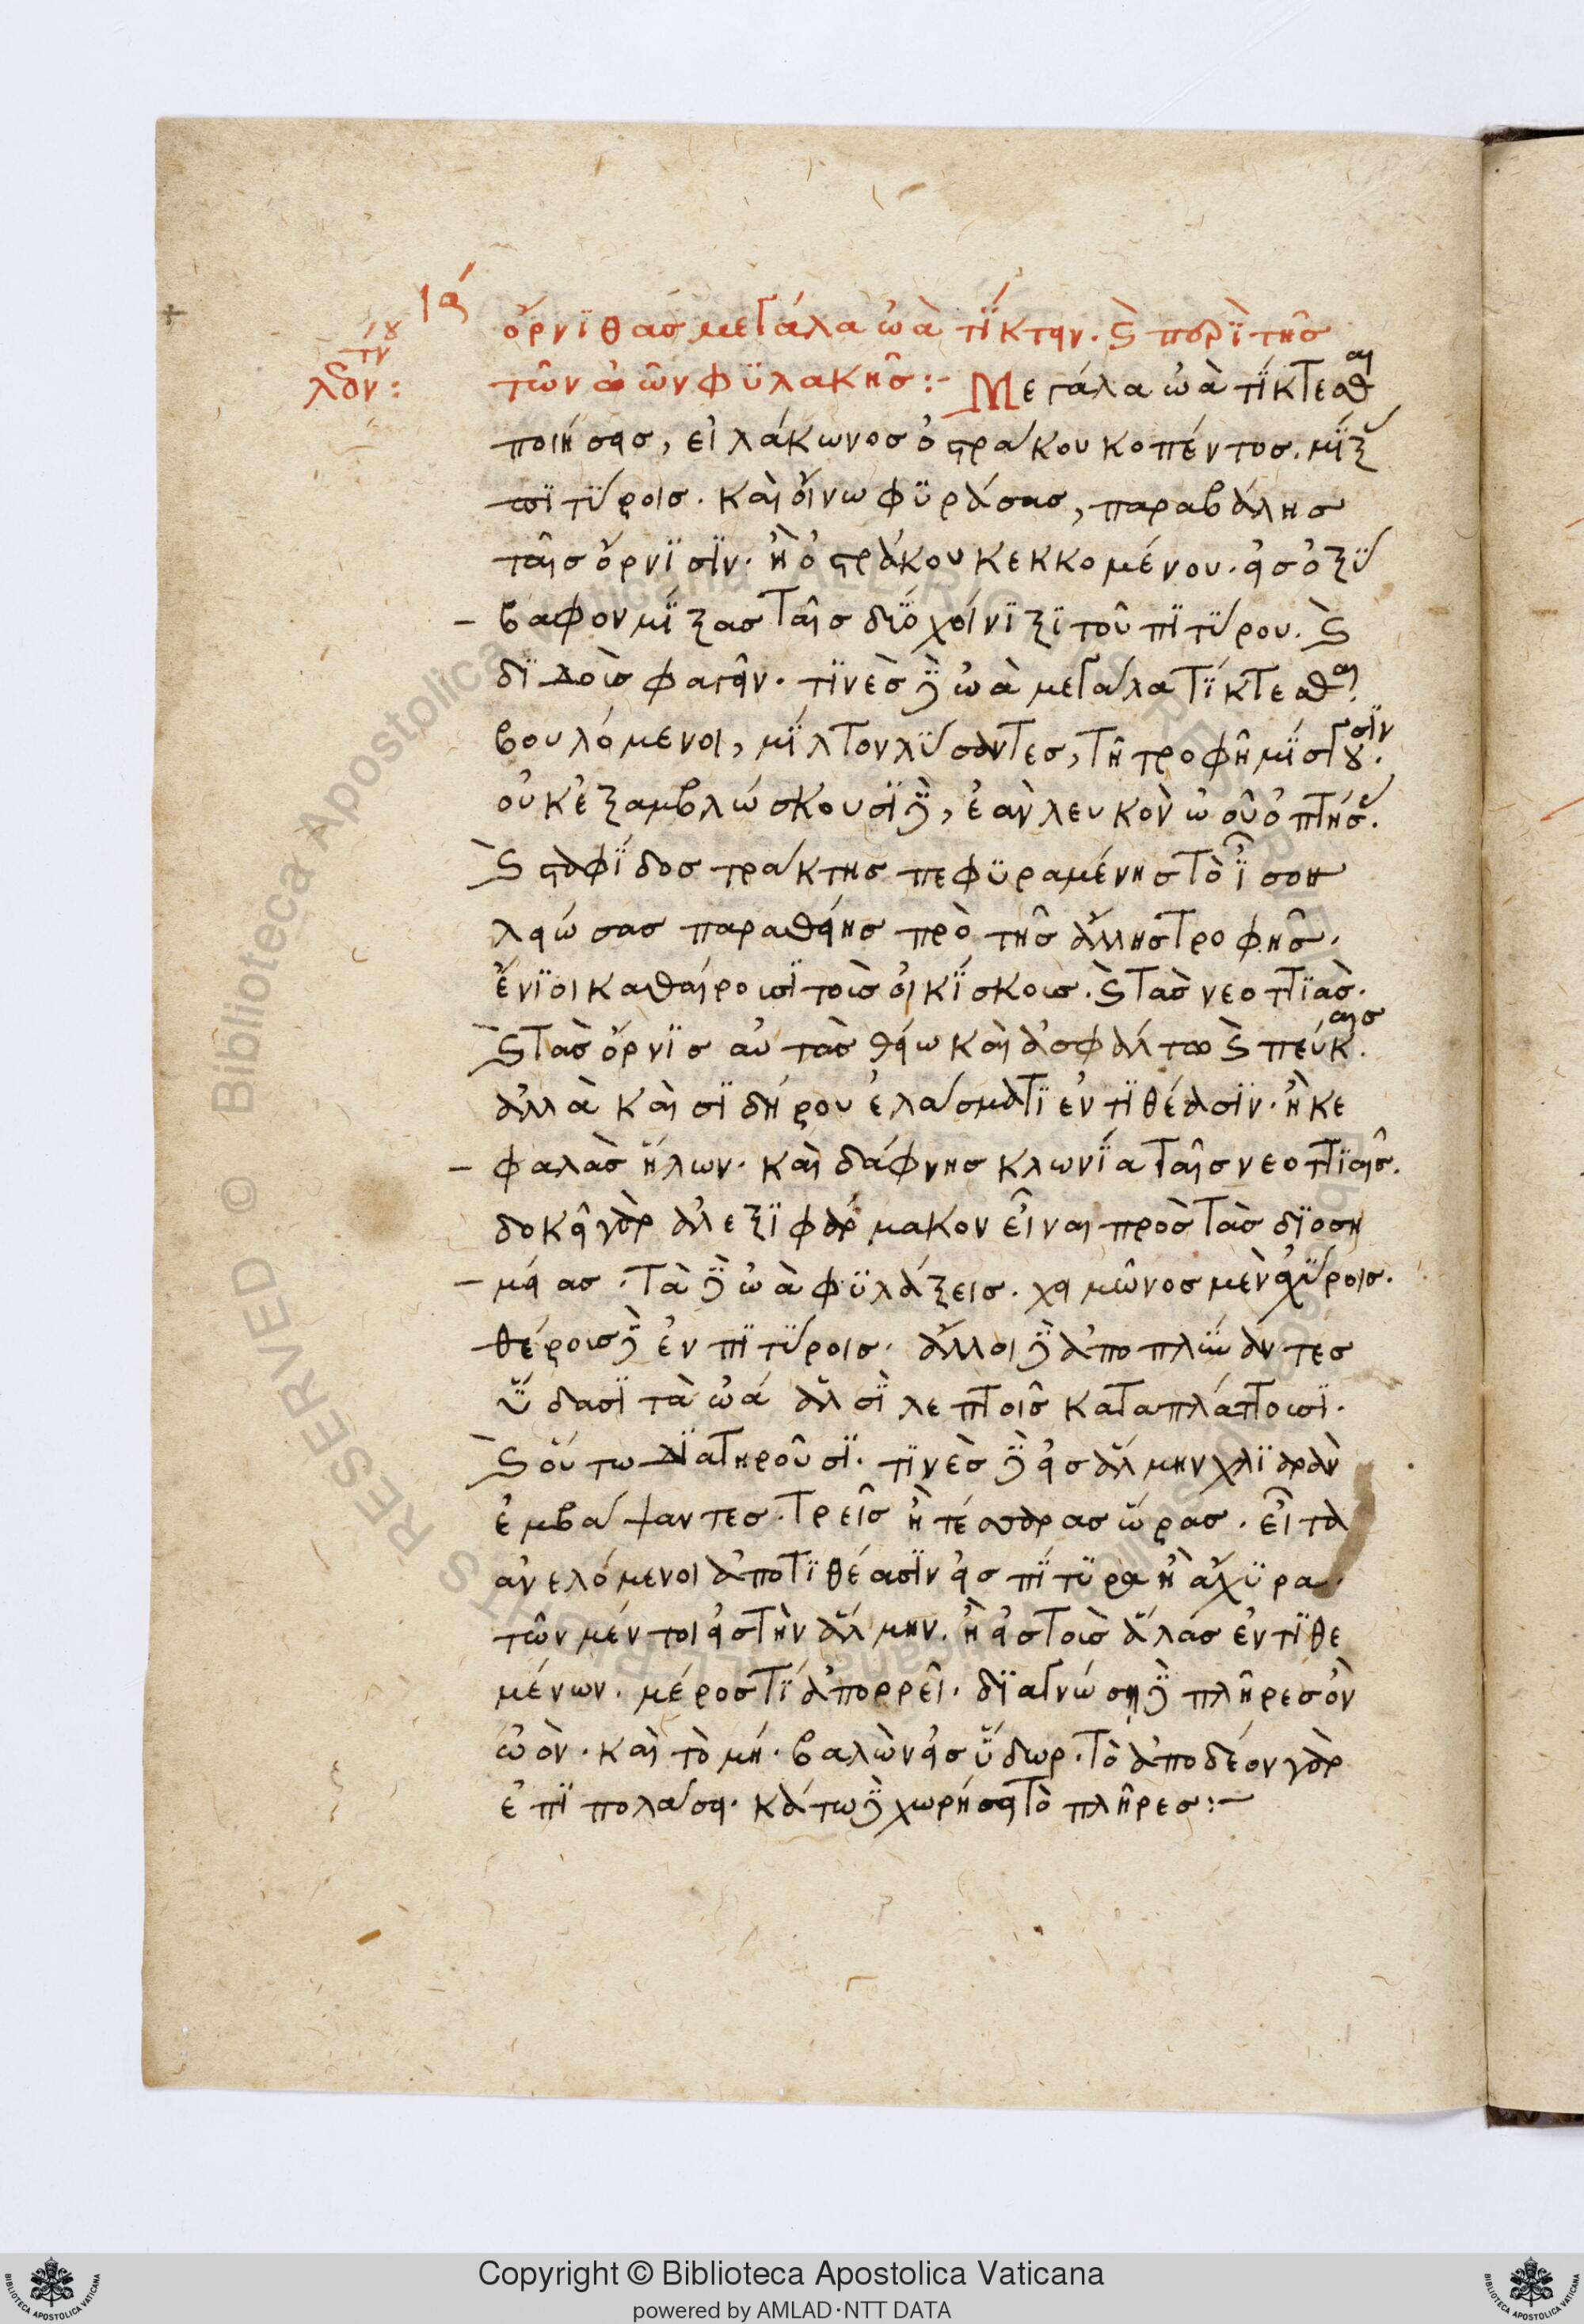 ιϛ´
ὄρνιθας μεγάλα ὠὰ τίκτειν. ϗ περὶ τῆς
τοῦ
λεον:
τῶν ὠῶν φυλακῆς:- Μεγάλα ὠὰ τίκτεσθαι
ποιήσεις, εἰ λάκωνος ὀστράκου κοπέντος. μίξ
πιτύροις. καὶ οἴνω φυράσας, παραβάλης
ταῖς ὄρνισιν. ἢ ὀστράκου κεκκομένου. εἰς ὀξύ
- βαφον μίξας ταῖς δυὸ χοίνιξι τοῦ πιτύρου. ϗ
διδοὺς φαγεῖν. τινὲς δὲ ὠὰ μεγάλα τίκτεσθαι
βουλόμενοι, μίλτον λύσαντες, τῆ τροφῆ μίσγουσιν.
οὐκ ἐξαμβλώσκουσι δὲ, ἐὰν λευκὸν ὠοῦ ὀπτήσ.
ϗ σταφίδος φρακτῆς πεφυραμένης τὸ ἴσον
λειώσας παραθείης πρὸ τῆς ἄλλης τροφῆς.
ἔνιοι καθαίρουσι τοὺς οἰκίσκους. ϗ τὰς νεοττιὰς.
ϗ τὰς ὄρνις αὐτὰς θείω καὶ ἀσφάλτω ϗ πεύκαις.
ἀλλὰ καὶ σιδήρου ἐλάσματι ἐντιθέασιν. ἢ κε
- φαλὰς ἥλων. καὶ δάφνης κλωνία ταῖς νεοττιαῖς.
δοκεῖ γὰρ ἀλεξιφάρμακον εἶναι πρὸς τὰς διοση
- μείας. τὰ δὲ ὠὰ φυλάξεις. χειμῶνος μὲν ἀχύροις.
θέρους δὲ ἐν πιτύροις. ἄλλοι δὲ ἀποπλύναντες
ὕδασι τὰ ὠά ἁλσὶ λεπτοῖς καταπλάττουσι.
ϗ οὕτω διατηροῦσι. τινὲς δὲ εἰς ἅλμην χλιαρὰν
ἐμβάψαντες. τρεῖς ἢ τέσσαρας ὥρας. εἶτα
ἀνελόμενοι ἀποτιθέασιν εἰς πίτυρα ἢ ἄχυρα.
τῶν μέντοι εἰς τὴν ἅλμην. ἢ εἰς τοὺς ἅλας ἐντιθε
μένων. μέρος τί ἀπορρεῖ. διαγνώση δὲ πλῆρες ὂν
ὠὸν. καὶ τὸ μή. βαλὼν εἰς ὕδωρ. τὸ ἀποδέον γὰρ
ἐπιπολάσει. κάτω δὲ χωρήσει τὸ πλῆρες:-
Copyright © Biblioteca Apostolica Vaticana
powered by AMLAD·NTT DATA